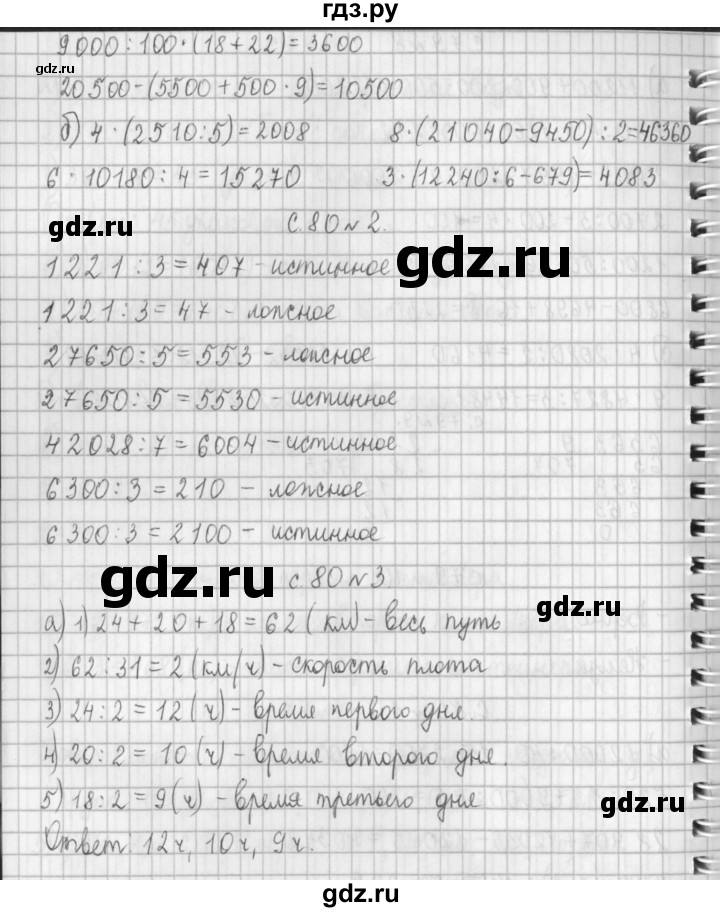 гдз.ру
9000:100·(18+22)=3600
gdz.ru
20500-(5500+500·9)=10500
б) 4·(2510:5)=2008 8·(21040-9450):2=46360
6·10180:4=15270 3·(12240:6-679)=4083
gdz.ru
с. 80 № 2.
gdz.ru
1221:3=407 - истинное
1221:3=47 - ложное
27650:5=553 - ложное
27650:5=5530 - истинное
42028:7=6004 - истинное
gdz.ru
6300:3=210 - ложное
6300:3=2100 - истинное
gdz.ru
с. 80 № 3
gdz.ru
а) 1) 24+20+18=62 (км) - весь путь
2) 62:31=2 (км/ч) - скорость плота
3) 24:2=12 (ч) - время первого дня.
4) 20:2=10 (ч) - время второго дня.
gdz.ru
5) 18:2=9 (ч) - время третьего дня
gdz.ru
Ответ: 12ч, 10ч, 9ч.
gdz.ru